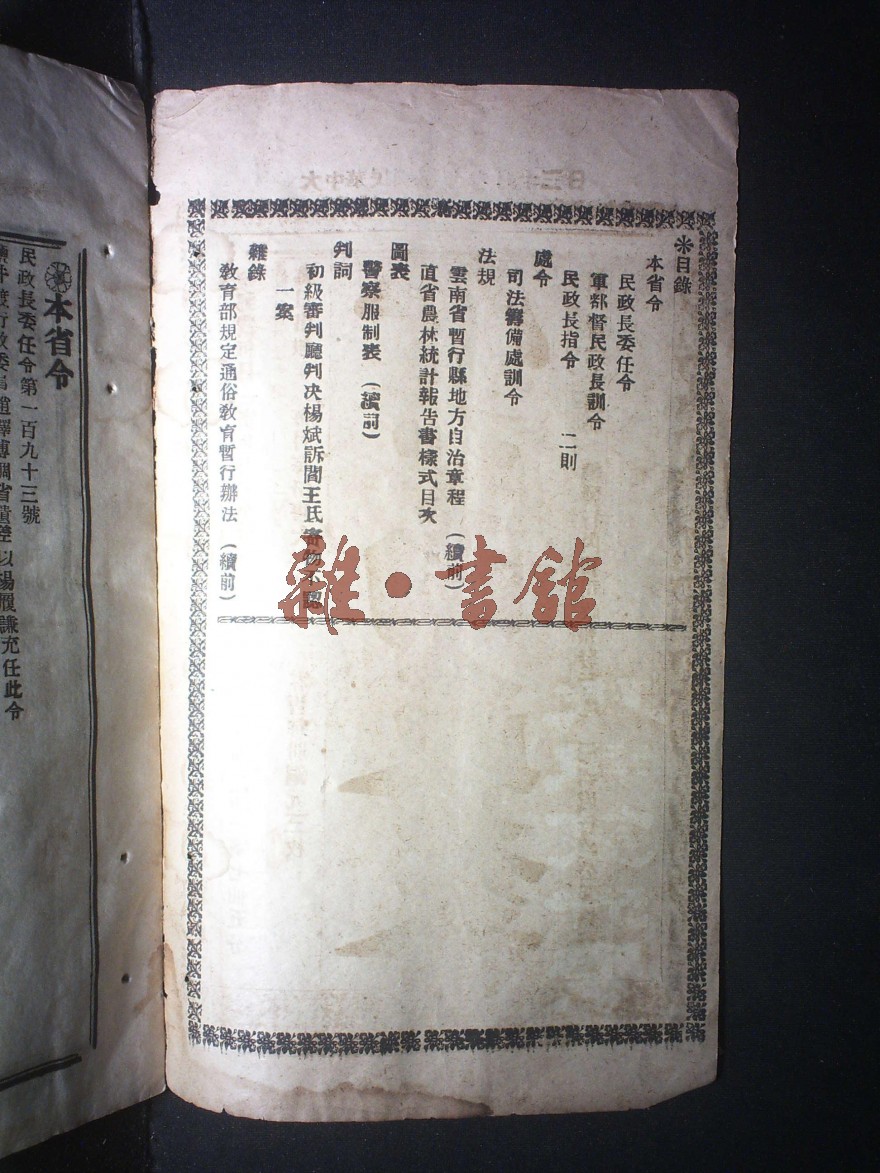 ※目錄
本省令
民政長委任令
軍都督民政長訓令
民政長指令 二則
處令
司法籌備處訓令
法規
雲南省暫行縣地方自治章程 (續前)
直省農林統計報告書樣式目次
圖表
警察服制表 (續前)
判詞
初級審判廳判决楊斌訴閻王氏寄物不認
一案
雜錄
敎育部規定通俗敎育暫行辦法 (續前)
雜·書館
本省令
民政長委任令第一百九十三號
以楊履謙充任此令